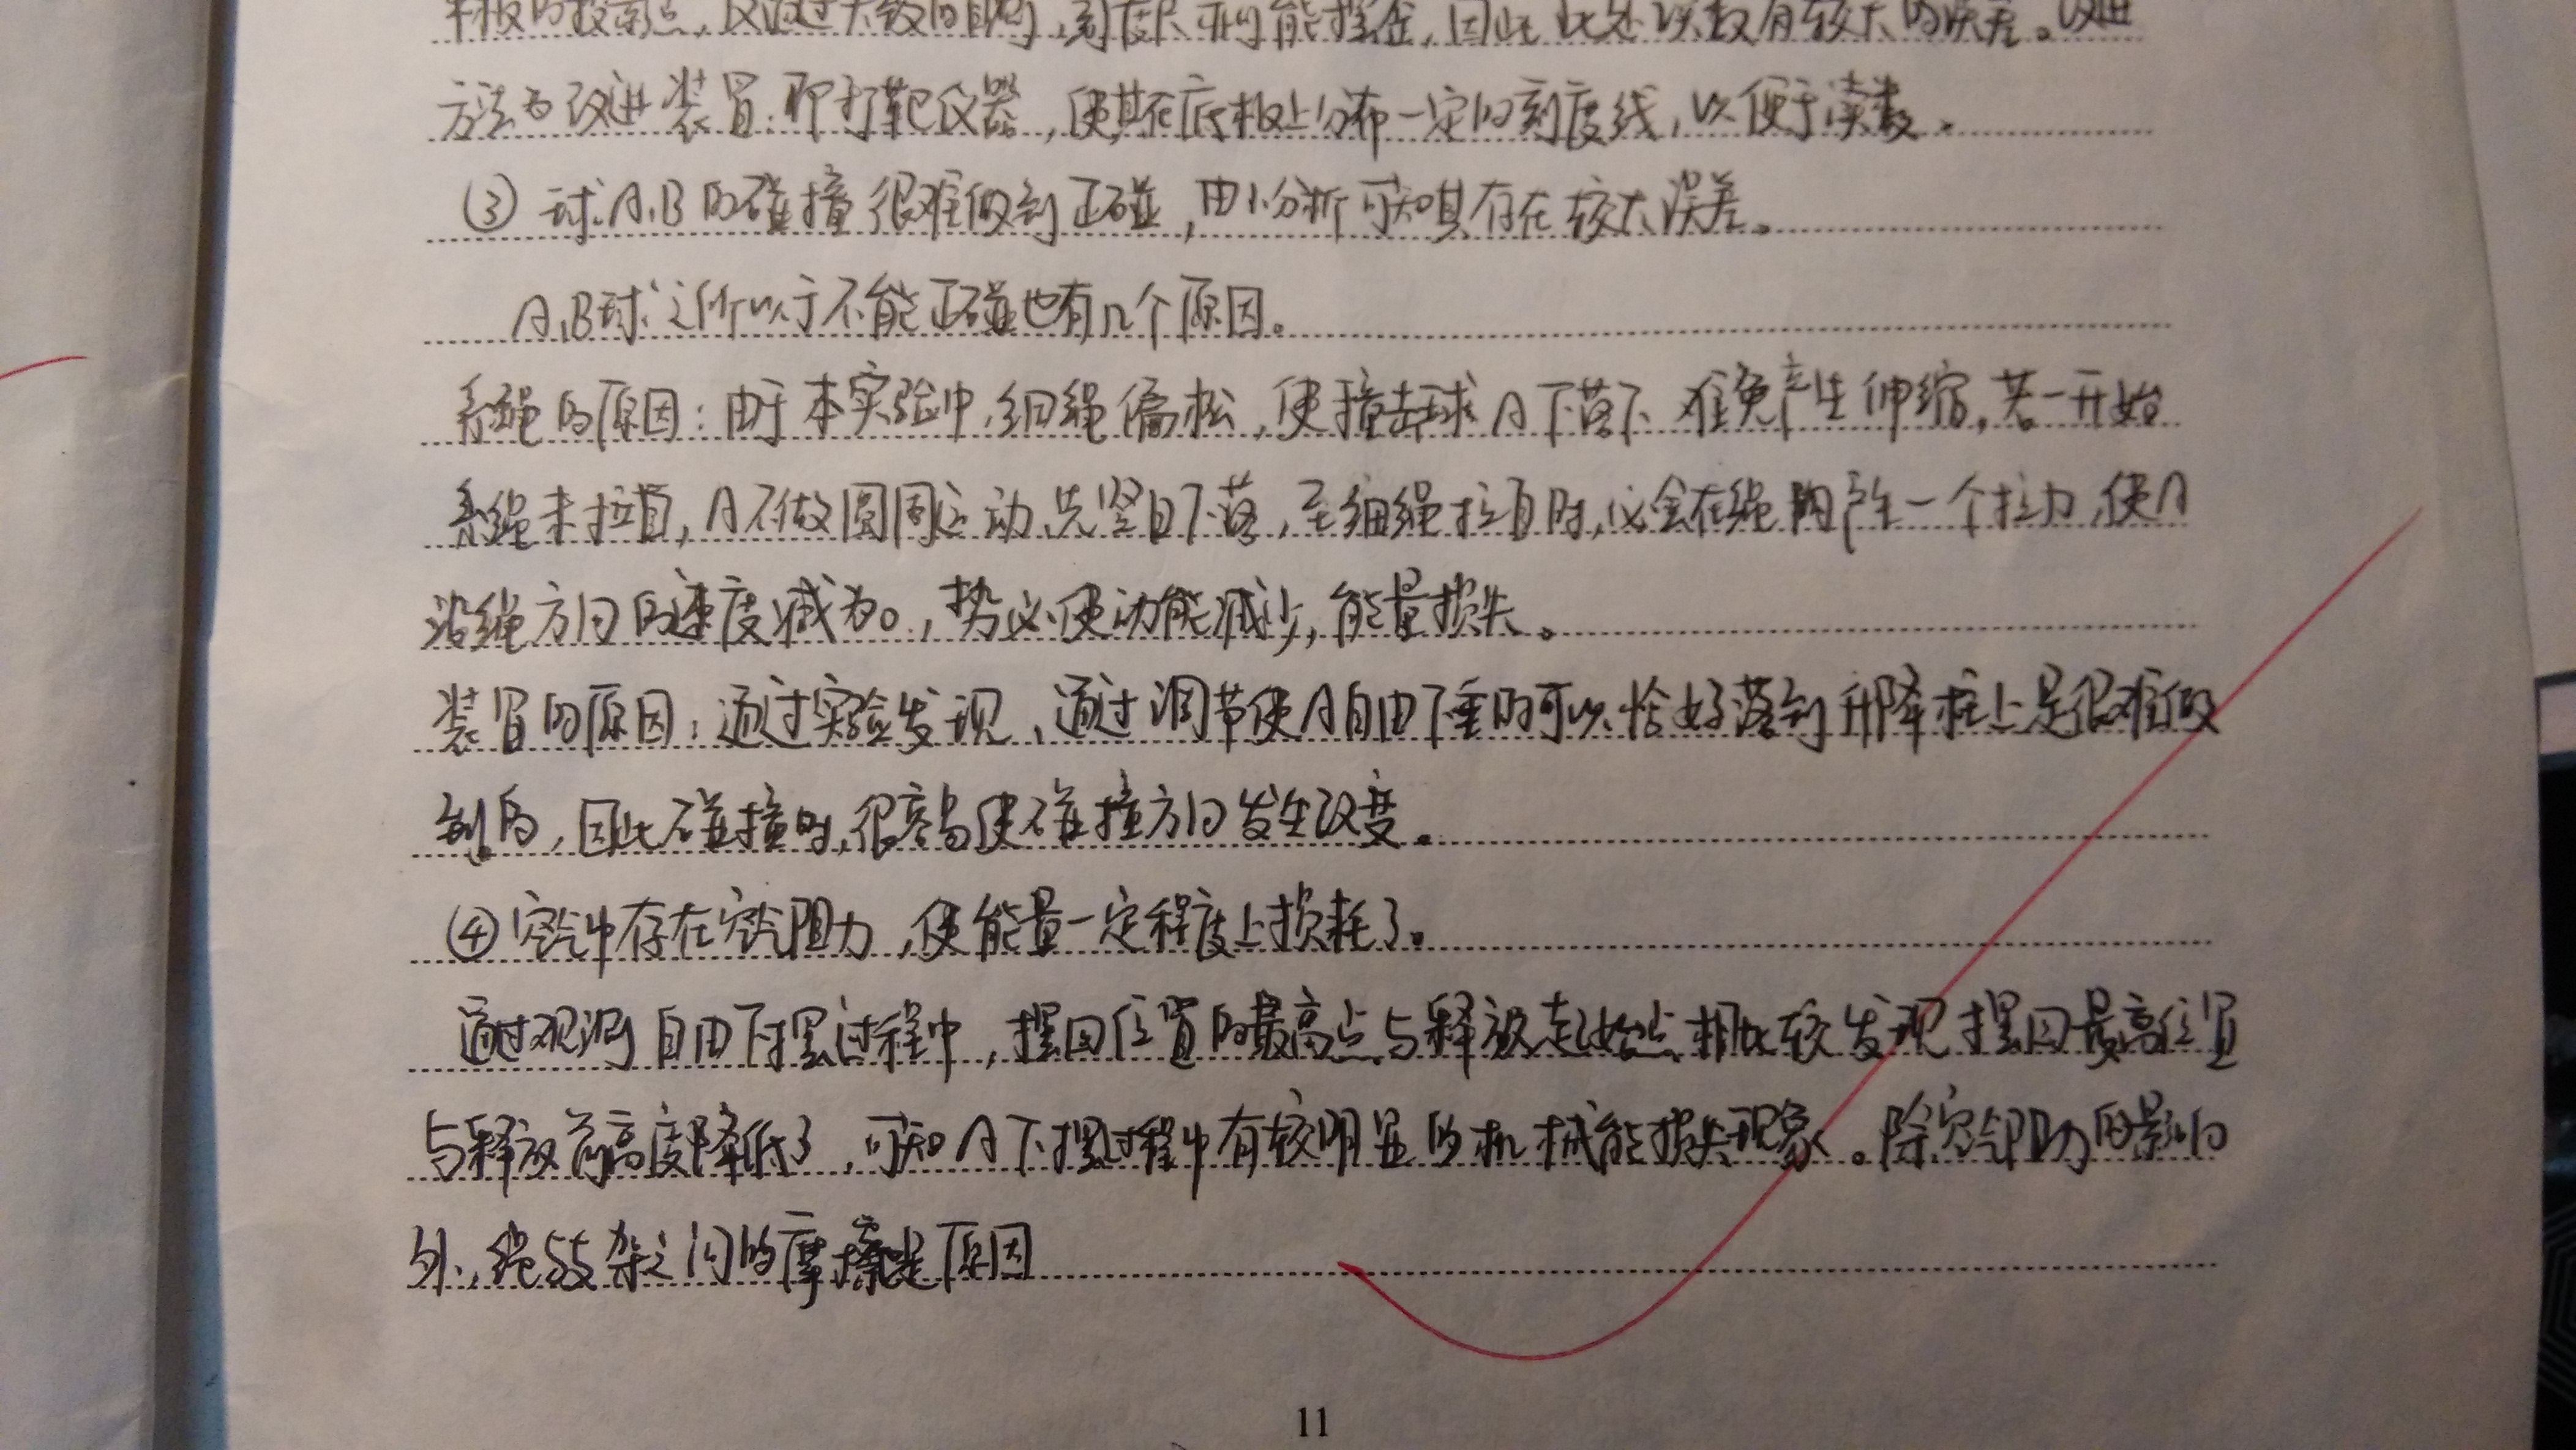 平板的接高点,仅通过大致的目测,刻度尺亦可能摆歪,因此此处读数有较大的误差。改进
方法为改进装置:即打靶仪器,使其在底板上分布一定的刻度线,以便于读数。
③ 球A,B的碰撞很难做到正碰,由1分析可知其存在较大误差。
A,B球之所以于不能正碰也有几个原因。
系绳的原因:由于本实验中,细绳偏松,使撞击球A下落下难免产生伸缩,若一开始
系绳未拉直,A不做圆周运动,先竖直下落,至细绳拉直时,必会在绳内产生一个拉力,使A
沿绳方向的速度减为0,势必使动能减少,能量损失。
装置的原因:通过实验发现,通过调节使A自由下垂时可以恰好落到升降柱上是很难做
到的,因此碰撞时,很容易使碰撞方向发生改变。
④空气中存在空气阻力,使能量一定程度上损耗了。
通过观测自由下摆过程中,摆回位置的最高点与释放起始点相比较发现摆回最高位置
与释放前高度降低了,可知A下摆过程中有较明显的机械能损失现象。除空气阻力的影响
外,绳与支架之间的摩擦是原因
11